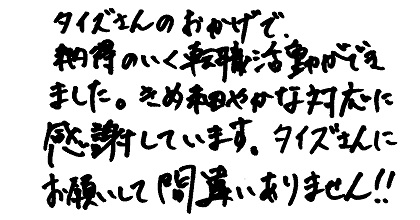 タイズさんのおかげで、
納得のいく転職活動ができ
ました。きめ細やかな対応に
感謝しています。タイズさんに
お願いして間違いありません!!